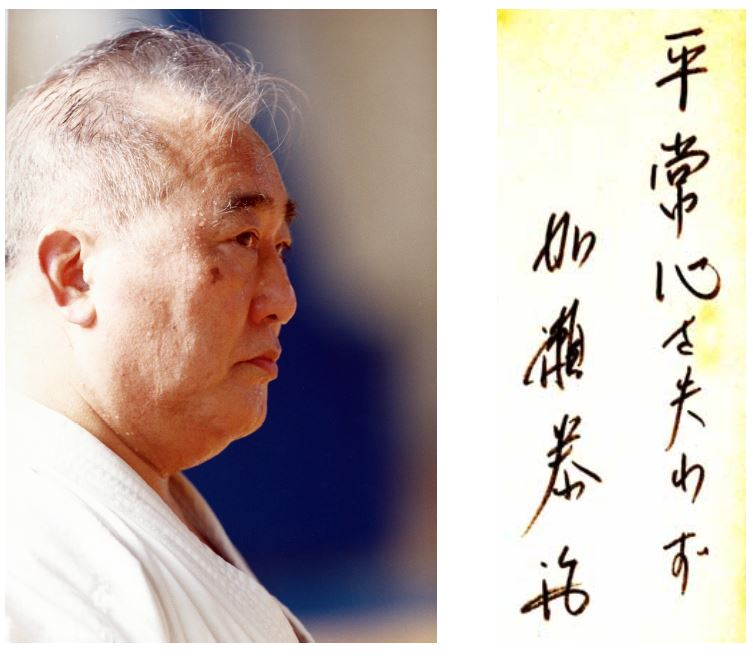 平常心を失わず
加瀬泰治